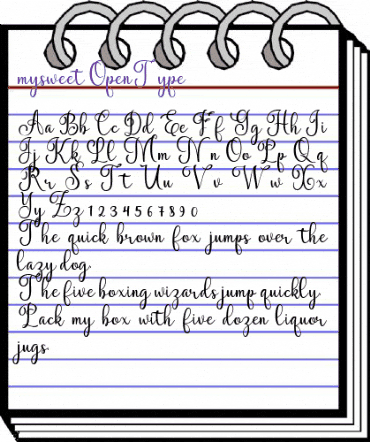 mysweet OpenType
Aa Bb Cc Dd Ee Ff Gg Hh Ii
Jj Kk Ll Mm Nn Oo Pp Qq
Rr Ss Tt Uu Vv Ww Xx
Yy Zz 1 2 3 4 5 6 7 8 9 0
The quick brown fox jumps over the
lazy dog.
The five boxing wizards jump quickly
Pack my box with five dozen liquor
jugs.